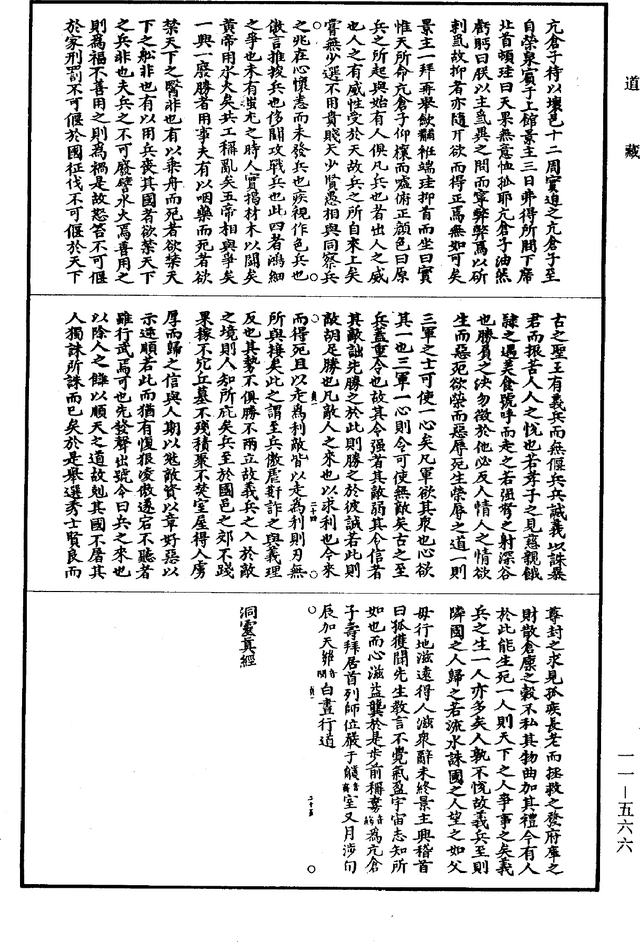 道藏
亢倉子待以壤邑十二周實迫之亢倉子至
自榮泉賓于上館景主三日弗得所問下席
北首頓珪曰天果無意恤孤耶亢倉子油然
虧眄曰朕以主氣異之問而寧弊弊焉以斫
刺氣故抑者亦隨所欲而得正焉無如可矣
景主一拜再舉斂黼袵端珪抑首而坐曰實
惟天所命亢倉子仰榱而噓俯正顏色曰原
兵之所起與始有人俱凡兵也者出人之威
也人之有威性受於天故兵之所自來上矣
嘗無少選不用貴賤天少賢愚相與同察兵
之兆在心懷恚而未發兵也疾視作色兵也
傲言推捘兵也侈鬬攻戰兵也此四者鴻細
之爭也未有蚩尤之時人實揭材木以鬬矣
黃帝用水火矣共工稱亂矣五帝相與爭矣
一興一廢勝者用事夫有以咽藥而死者欲
禁天下之醫非也有以乘舟而死者欲禁天
下之舩非也有以用兵喪其國者欲禁天下
之兵非也夫兵之不可廢譬水火焉善用之
則為福不善用之則為禍是故怒笞不可偃
於家刑罰不可偃於國征伐不可偃於天下
古之聖王有義兵而無偃兵兵誠義以誅暴
君而振苦人人之悅也若孝子之見慈親餓
隸之遇美食號呼而走之若強弩之射深谷
也勝負之決勿徵於他必反人情人之情欲
生而惡死欲榮而惡辱死生榮辱之道一則
三軍之士可使一心矣凡軍欲其衆也心欲
其一也三軍一心則令可使無敵矣古之至
兵蓋重令也故其令强者其敵弱其令信者
其敵詘先勝之於此則勝之於彼誠若此則
敵胡足勝也凡敵人之來也以求利也今來
而得死且以走為利敵皆以走為利則刃無
所與接矣此之謂至兵傲虐姧詐之與義理
反也其勢不俱勝不兩立故義兵之入於敵
之境則人知所庇矣兵至於國邑之郊不踐
果稼不宂丘墓不殘積聚不焚室屋得人虜
厚而歸之信與人期以勉敵資以章好惡以
示逆順若此而猶有愎狠凌傲遂宕不聽者
雖行武焉可也先發聲出號令曰兵之來也
以除人之讎以順天之道故剋其國不屠其
人獨誅所誅而已矣於是舉選秀士賢良而
尊封之求見孤疾長老而拯救之發府庫之
財散倉廩之穀不私其物曲加其禮今有人
於此能生死一人則天下之人爭事之矣義
兵之生一人亦多矣人孰不悅故義兵至則
隣國之人歸之若流水誅國之人望之如父
母行地滋遠得人滋衆辭未終景主興稽首
曰孤獲聞先生敎言不覺氣盈宇宙志知所
如也而心滋益龔於是步前稱觴為亢倉
子壽拜居首列師位嚴于賸室又月涉旬
辰加天關白晝行道
洞靈真經
一一—五六六